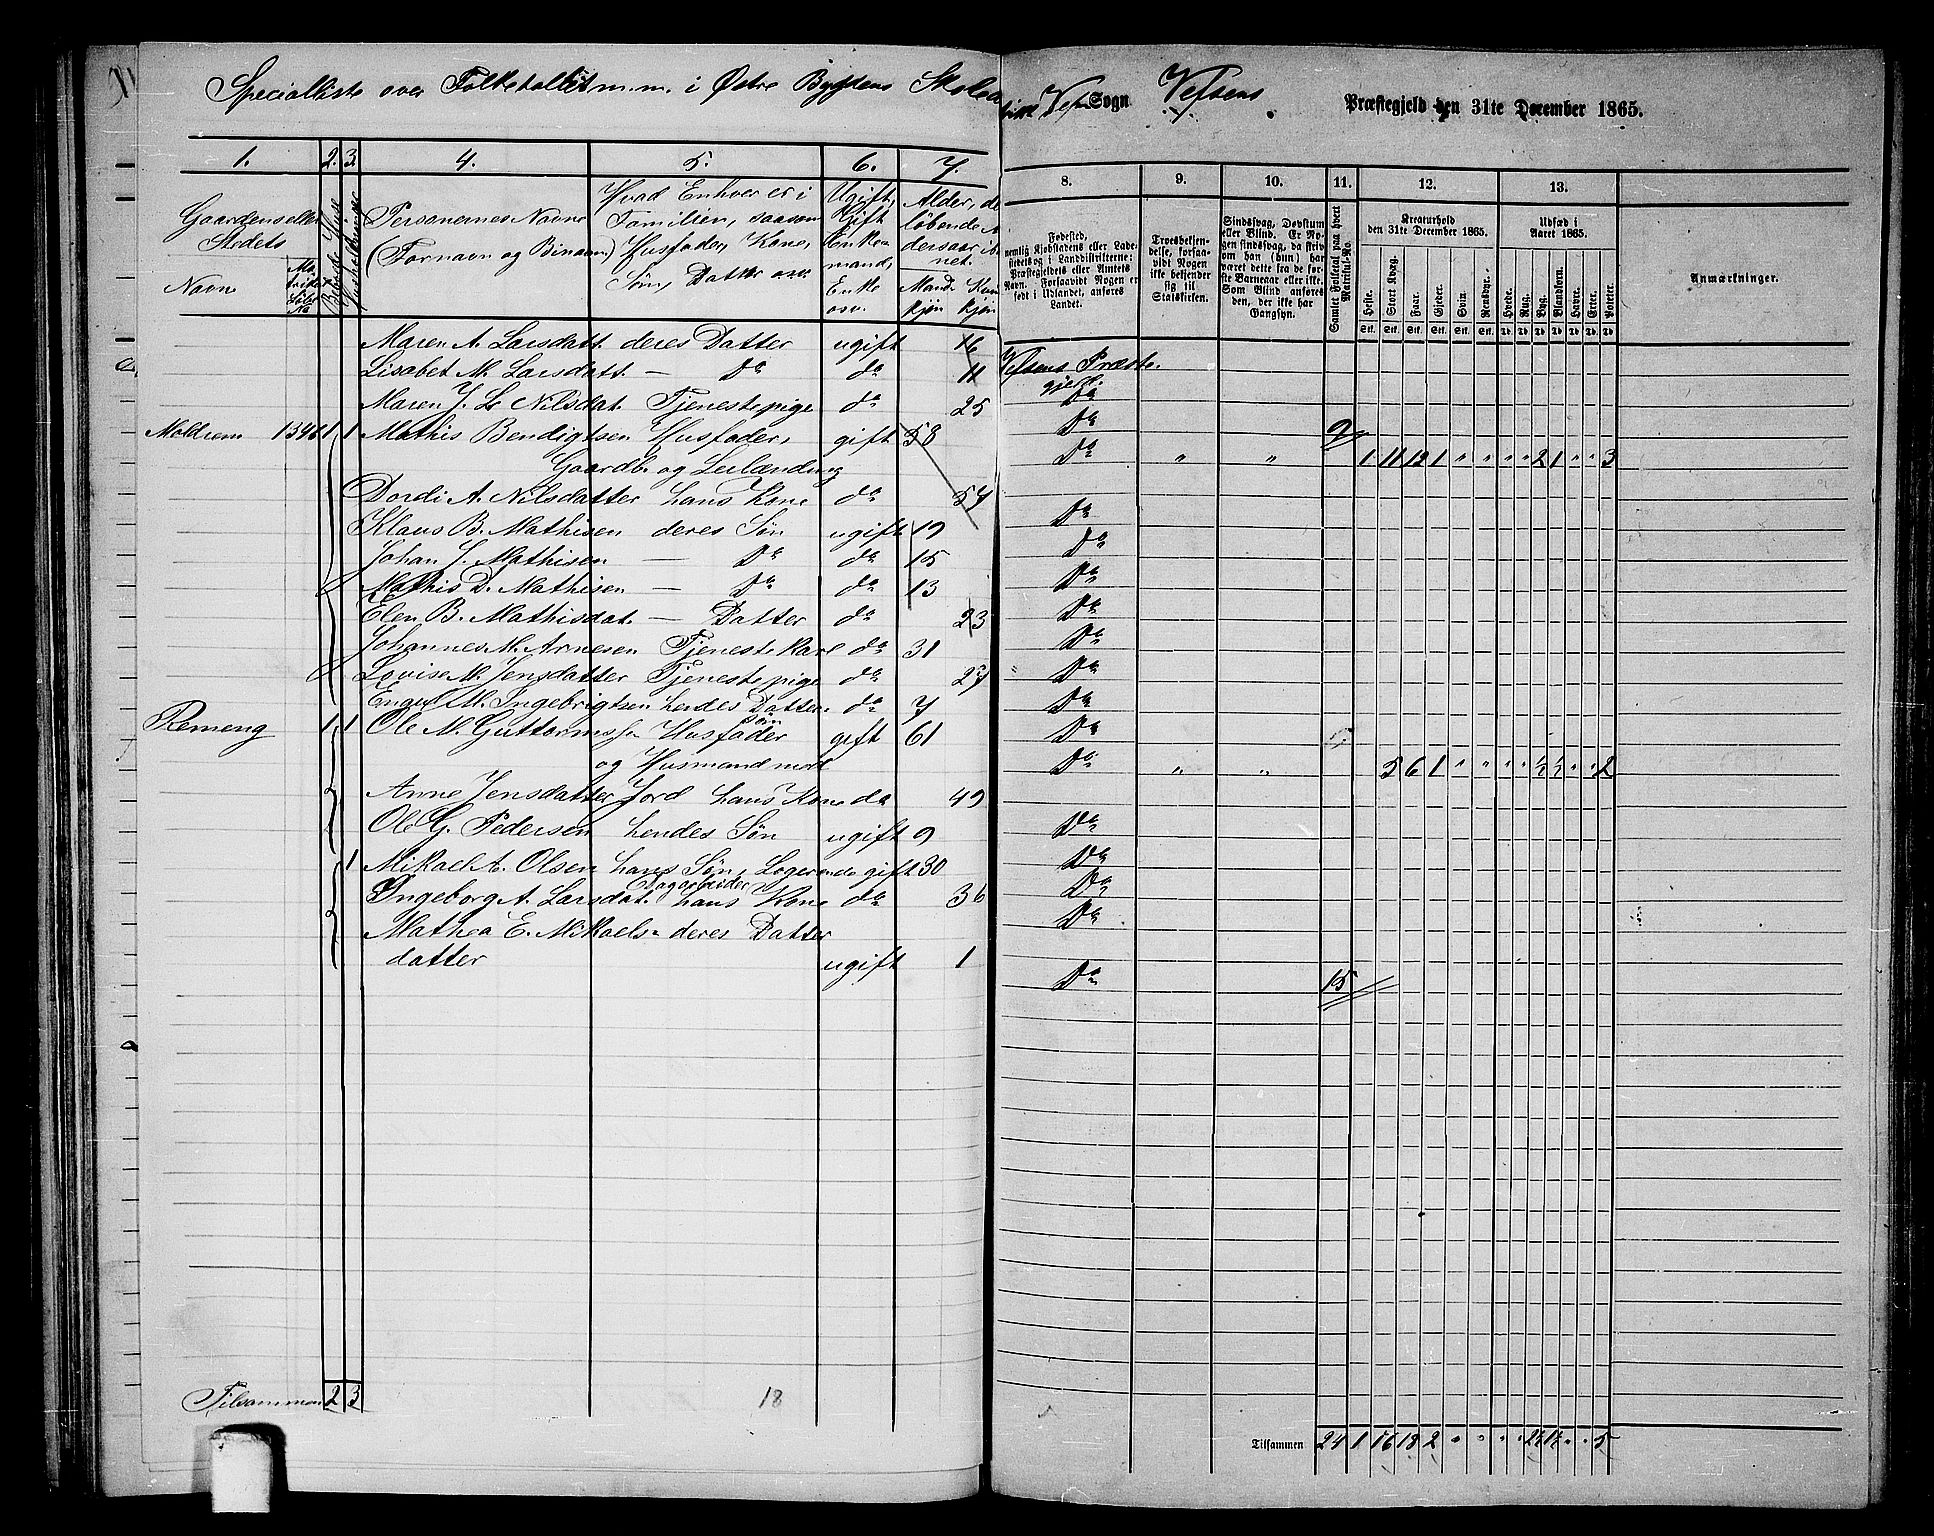 Specialliste over Folketallet m.m. i Østre Bygdens Skoledistrikt Vefsens Sogn Vefsens Præstegjeld den 31te December 1865.
1. 2. 3. 4. 5. 6. 7. 8. 9. 10. 11. 12. 13.
Gaardens eller Stedets Navn
Bebode Huse
Husholdninger
Personernes Navne (Fornavn og Binavn)
Hvad Enhver er i Familien, saasom Husfader, Kone, Søn, Datter osv.
Ugift, Gift Enkemand, Enke osv.
Alder, det løbende Aldersaar iberegnet.
Mandkjøn Kvindkjøn
Fødested, nemlig Kjøbstadens eller Ladestedets og i Landdistrikterne: Præstegjeldets eller Amtets Navn. Forsaavidt Nogen er født i Udlandet, anføres Landet.
Troesbekjendelse, forsaavidt Nogen ikke bekjender sig til Statskirken.
Sindssvag, Døvstum eller Blind. Er Nogen sindssvag, da skriv om han (hun) har været dette fra de første Barneaar eller ikke. Som Blind anføres den, der ikke har Gangsyn.
Samlet Folketal paa hvert Matrikul-No.
Kreaturhold den 31te December 1865.
Udsæd i Aaret 1865.
Anmærkninger.
Heste. Stort Kvæg. Faar. Gjeder. Svin. Rensdyr. Hvede. Rug. Byg. Blandkorn. Havre. Erter. Poteter.
Maren A. Larsdatt. deres Datter ugift 16 Vefsens Præstegjeld.
Lisabet M. Larsdatt. — Do do 11 Do
Maren J. L. Nilsdat. Tjenestepige do 25 Do
Moldrem 1346 1 1 Mathis Bendigtsen Husfader, gift 58 Do 9
Gaardb. og Leilænding 1 11 12 1 " " " " 2 1 " " 3
Dordi A. Nilsdatter hans Kone do 57 Do
Klaus B. Mathisen deres Søn ugift 19 Do
Johan J. Mathisen — Do do 15 Do
Mathis D. Mathisen — Do do 13 Do
Elen B. Mathisdat. — Datter do 23 Do
Johannes M. Arnesen Tjenestekarl do 31 Do
Lovise M. Jensdatter Tjenestepige do 27 Do
M. Ingebrigtsen hendes Søn do 7 Do
Remeng 1 1 Ole M. Guttormss. Husfader gift 61 Do
og Husmand med 5 6 1 " " " " ½ ½ " " 2
Anne Jensdatter Jord hans Kone do 49 Do
Ole G. Pedersen hendes Søn ugift 9 Do
1 Mikael A. Olsen hans Søn, Logerende gift 30 Do
Dagarbeider
Ingeborg A. Larsdat. hans Kone do 36 Do
Mathea E. Mikaels- deres Datter
datter ugift 1 Do 15
Tilsammen 2 3 18
Tilsammen 24 1 16 18 2 " " " " 2½ 1½ " " 5